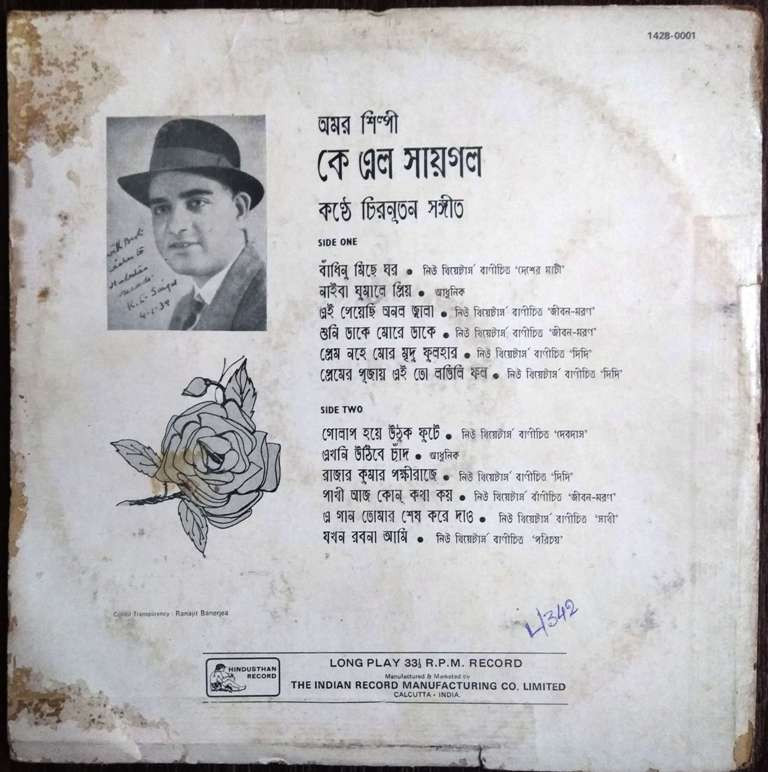 1428-0001
অমর শিল্পী
কে এল সায়গল
কণ্ঠে চিরনূতন সঙ্গীত
SIDE ONE
বাঁধিনু মিছে ঘর • নিউ থিয়েটার্স বাণীচিত্র 'দেশের মাটী'
নাইবা ঘুমালে প্রিয় • আধুনিক
এই পেয়েছি অনল জ্বালা • নিউ থিয়েটার্স বাণীচিত্র 'জীবন-মরণ'
শুনি ডাকে মোরে ডাকে • নিউ থিয়েটার্স বাণীচিত্র 'জীবন-মরণ'
প্রেম নহে মোর মৃদু ফুলহার • নিউ থিয়েটার্স বাণীচিত্র 'দিদি'
প্রেমের পূজায় এই তো লভিলি ফল • নিউ থিয়েটার্স বাণীচিত্র 'দিদি'
SIDE TWO
গোলাপ হয়ে উঠুক ফুটে • নিউ থিয়েটার্স বাণীচিত্র 'দেবদাস'
এখনি উঠিবে চাঁদ • আধুনিক
রাজার কুমার পক্ষীরাজে • নিউ থিয়েটার্স বাণীচিত্র 'দিদি'
পাখী আজ কোন্ কথা কয় • নিউ থিয়েটার্স বাণীচিত্র 'জীবন-মরণ'
এ গান তোমার শেষ করে দাও • নিউ থিয়েটার্স বাণীচিত্র 'সাথী'
যখন রবনা আমি • নিউ থিয়েটার্স বাণীচিত্র 'পরিচয়'
K. L. Saigal
Colour Transparency : Ranajit Banerjee
L/342
HINDUSTHAN RECORD
LONG PLAY 33⅓ R.P.M. RECORD
Manufactured & Marketed by
THE INDIAN RECORD MANUFACTURING CO. LIMITED
CALCUTTA - INDIA.